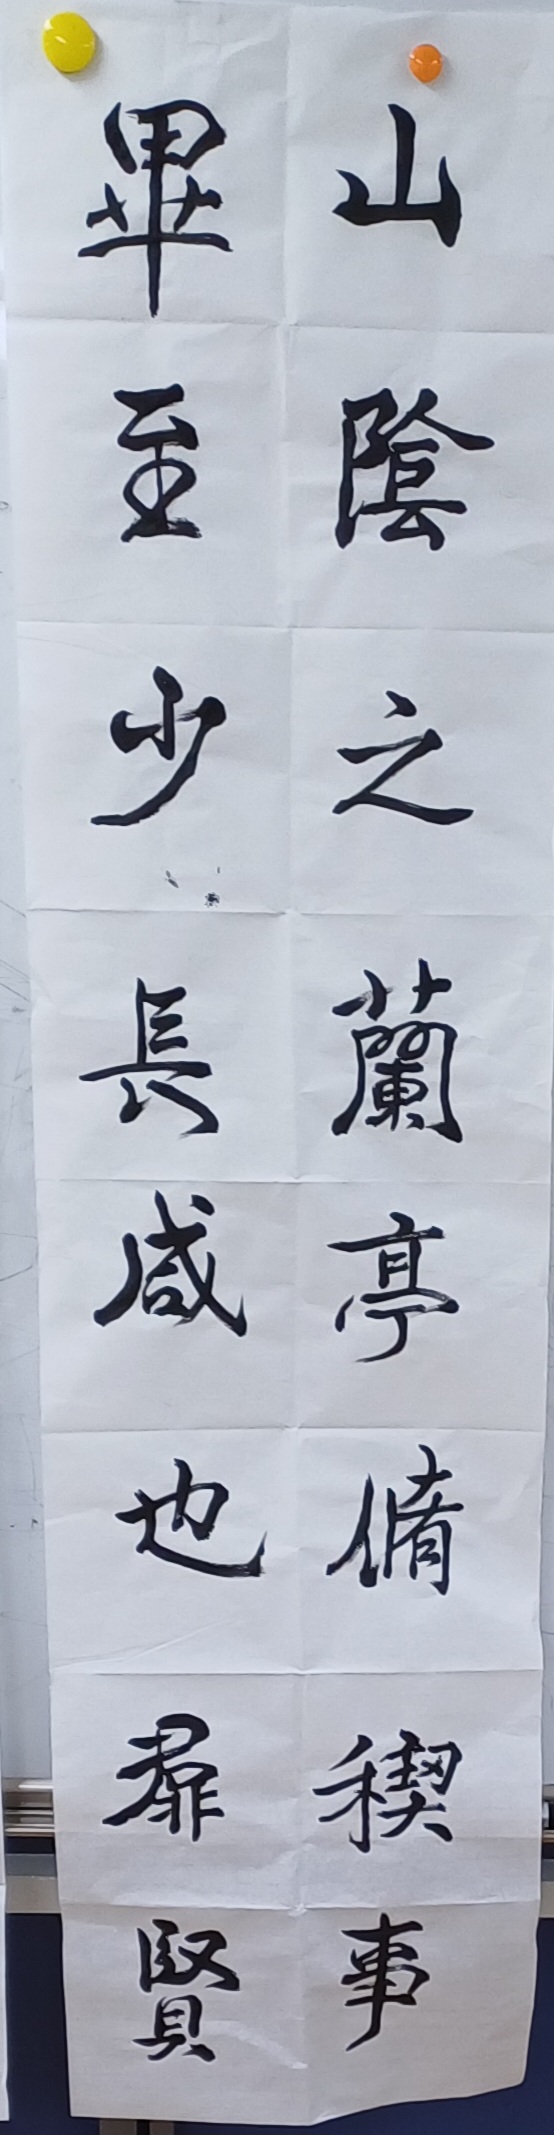 山陰之蘭亭脩稧事
畢至少長咸也羣賢